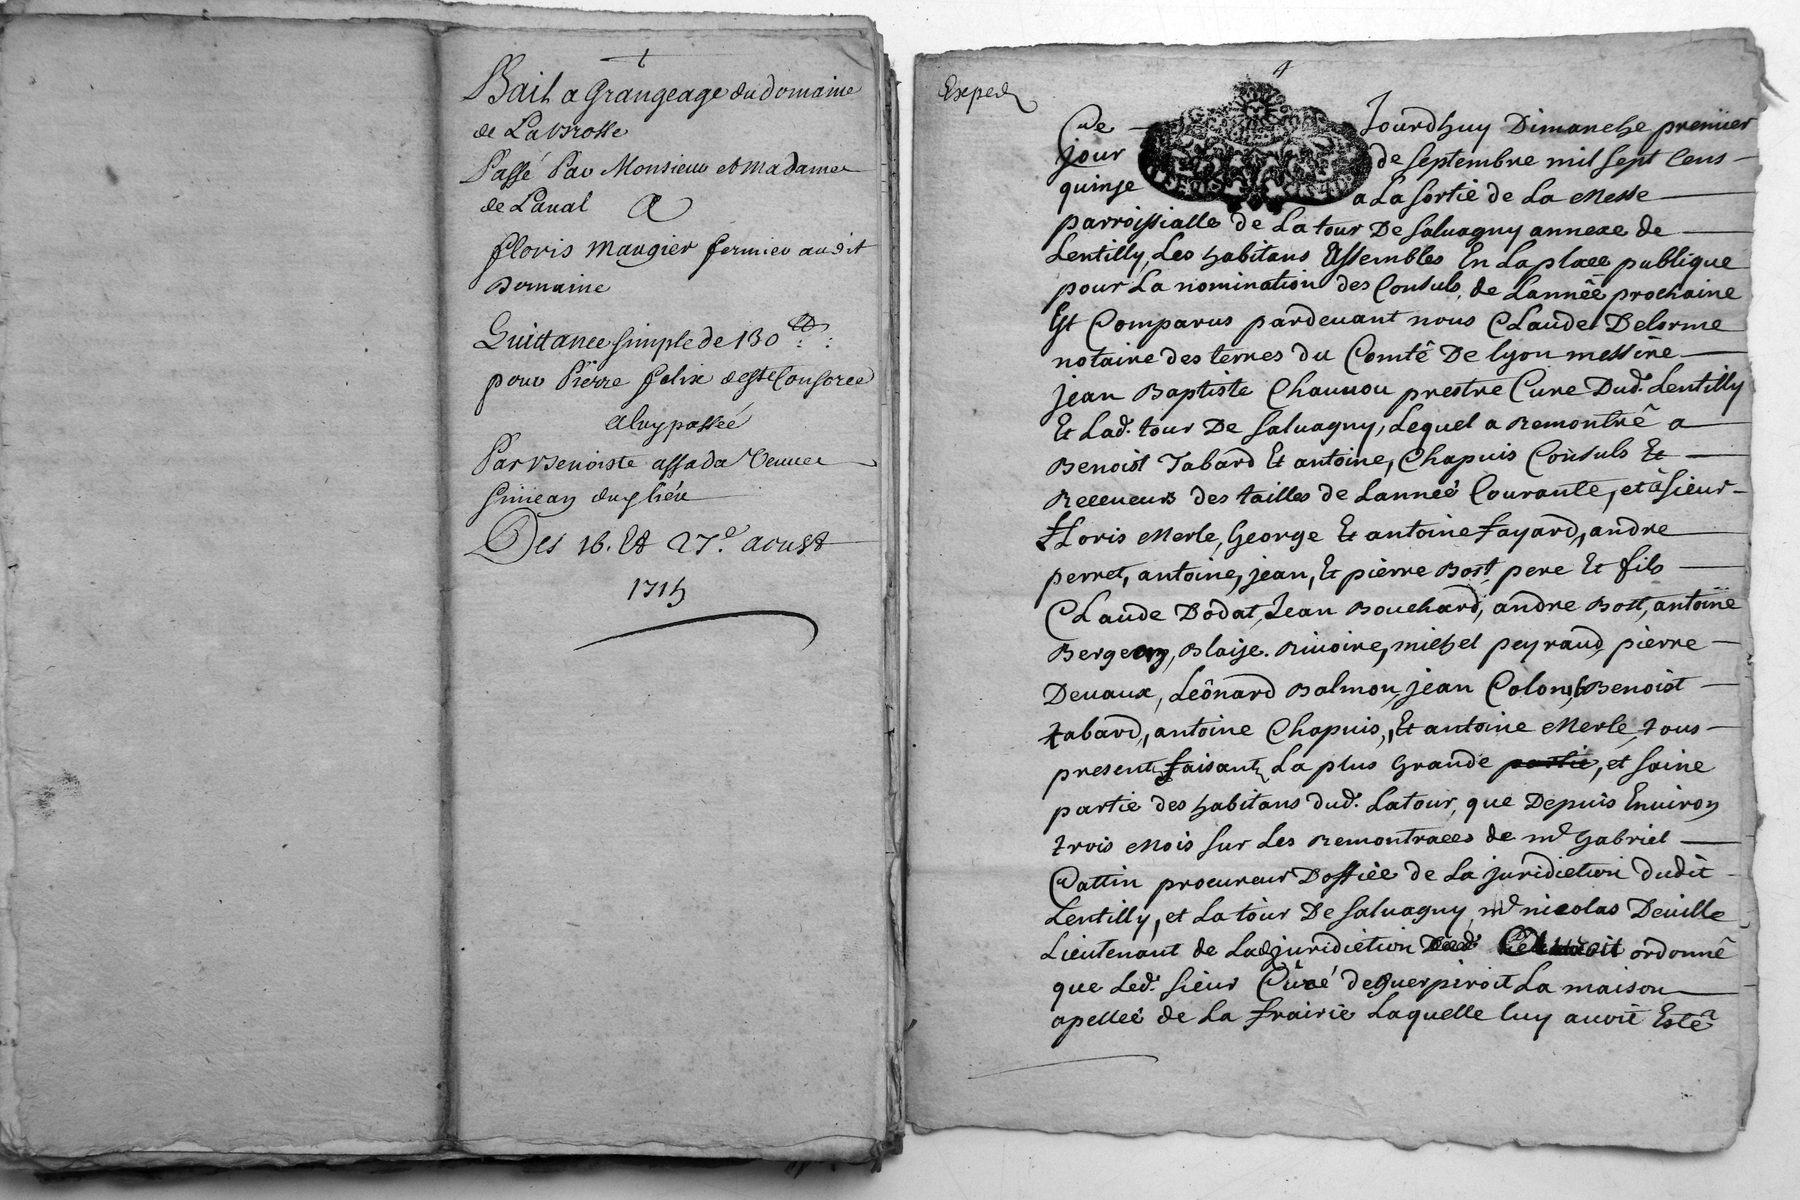 Bail a Grangeage du domaine
de Labrosse
Passé Par Monsieur et Madame
de Laual A
floris Maugier fermier audit
Domaine
Quittance simple de 130 ℔
pour Pierre felix
a luy passée
Par Benoiste assada Veuue
simean duy lieu
Des 16. Et 27.e aoust
1715
Exped
Ce Jourdhuy Dimanche premier
jour de septembre mil sept Cens
quinze a La sortie de La Messe
parroissialle de La tour De saluagny annexe de
Lentilly, Les habitans Assemblés En La place publique
pour La nomination des Consuls, de Lannée prochaine
Est Comparus pardeuant nous CLaude Delorme
notaire des terres du Comté De lyon messire
jean Baptiste Chauuou prestre Curé Dud. Lentilly
Et Lad. tour De saluagny, Lequel a Remontré a
Benoist Tabard Et antoine, Chapuis Consuls Et
Receueurs des tailles de Lanneé Courante, et à sieur
fLoris Merle, George Et antoine fayard, andre
perret, antoine, jean, Et pierre Bost pere Et fils
CLaude Dodat, Jean Bouchard, andre Bost, antoine
Bergeon, Blaise Riuoire, michel peyraud pierre
Deuaux, Leonard Balmon, jean Colomb, Benoist
tabard, antoine Chapuis, Et antoine Merle, tous
presents faisants La plus Grande partie, et saine
partie des habitans dud. Latour, que Depuis Enuiron
trois Mois sur Les Remontraces de mr Gabriel
Cattin procureur Doffice de La juridiction dudit
Lentilly, et La tour De saluagny mr nicolas Deuille
Lieutenant de Lad juridiction ordonné
que Led. sieur Curé deguerpiroit La maison
apelleé de La frairie Laquelle luy auoit Esté